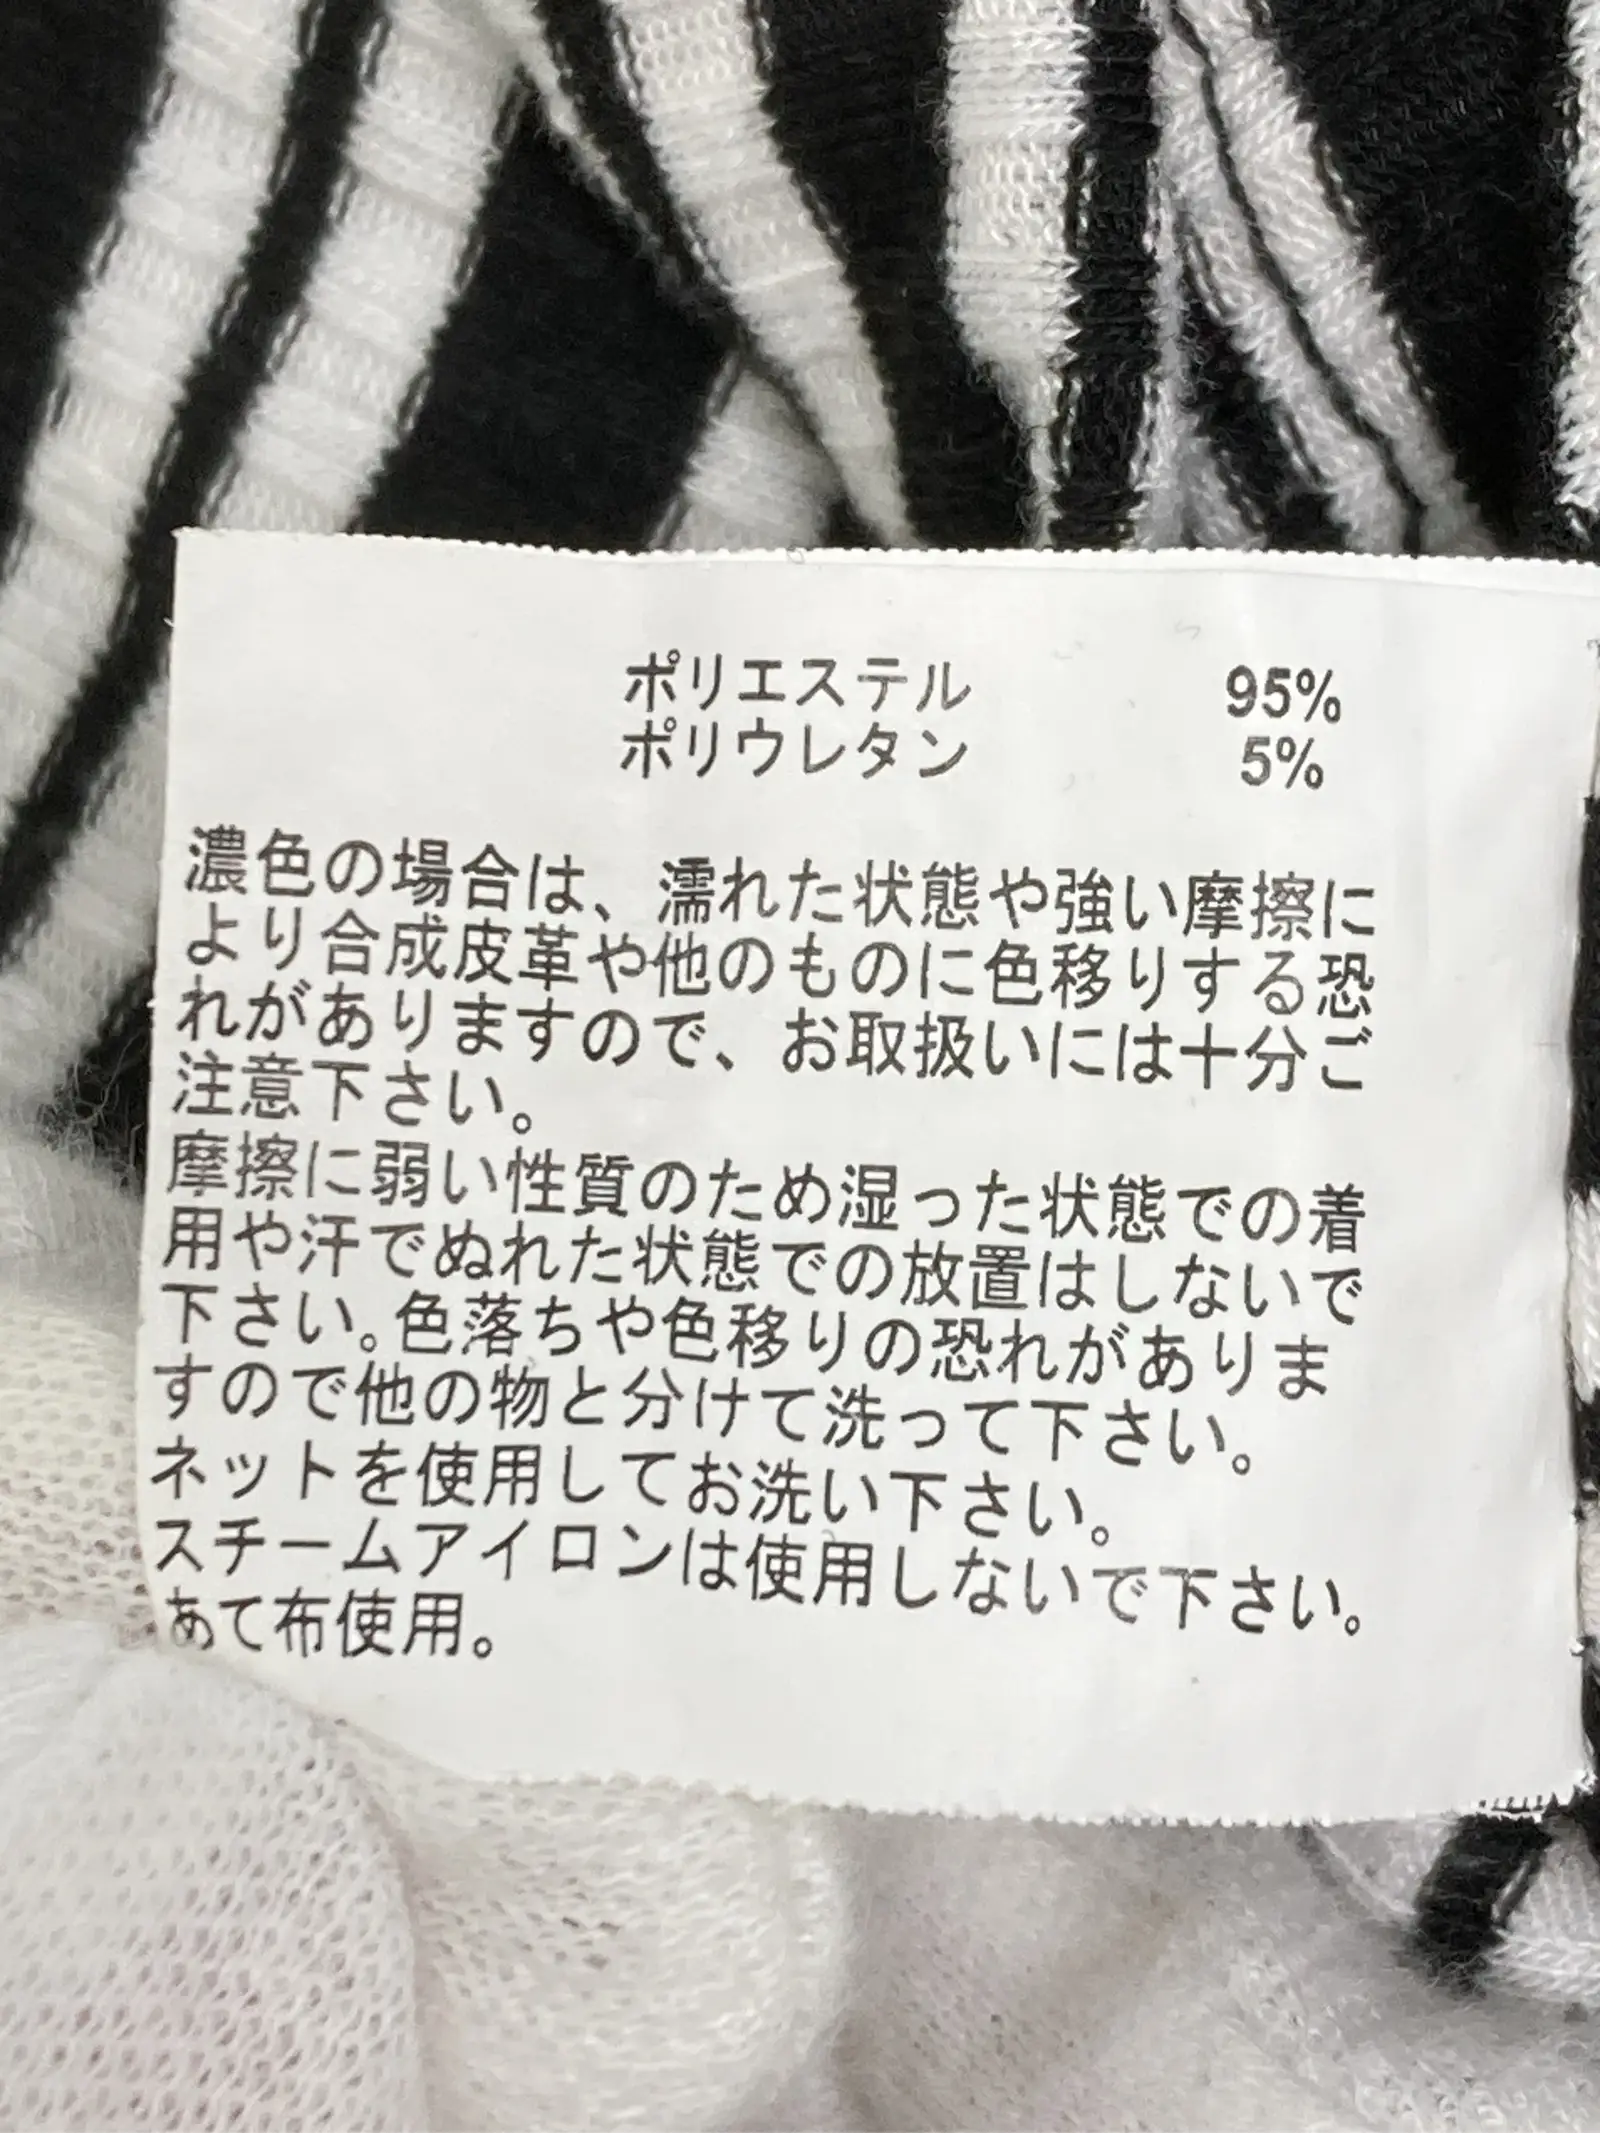 ポリエステル 95%
ポリウレタン 5%
濃色の場合は、濡れた状態や強い摩擦に
より合成皮革や他のものに色移りする恐
れがありますので、お取扱いには十分ご
注意下さい。
摩擦に弱い性質のため湿った状態での着
用や汗でぬれた状態での放置はしないで
下さい。色落ちや色移りの恐れがありま
すので他の物と分けて洗って下さい。
ネットを使用してお洗い下さい。
スチームアイロンは使用しないで下さい。
あて布使用。